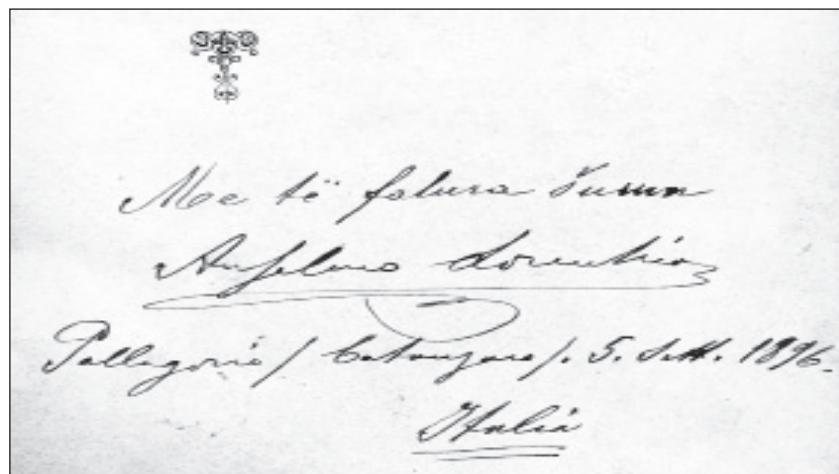 Me të falura shumë
Anselmo Lorecchio
Pallagorio / Catanzaro /. 5. Sett. 1896.
Italia